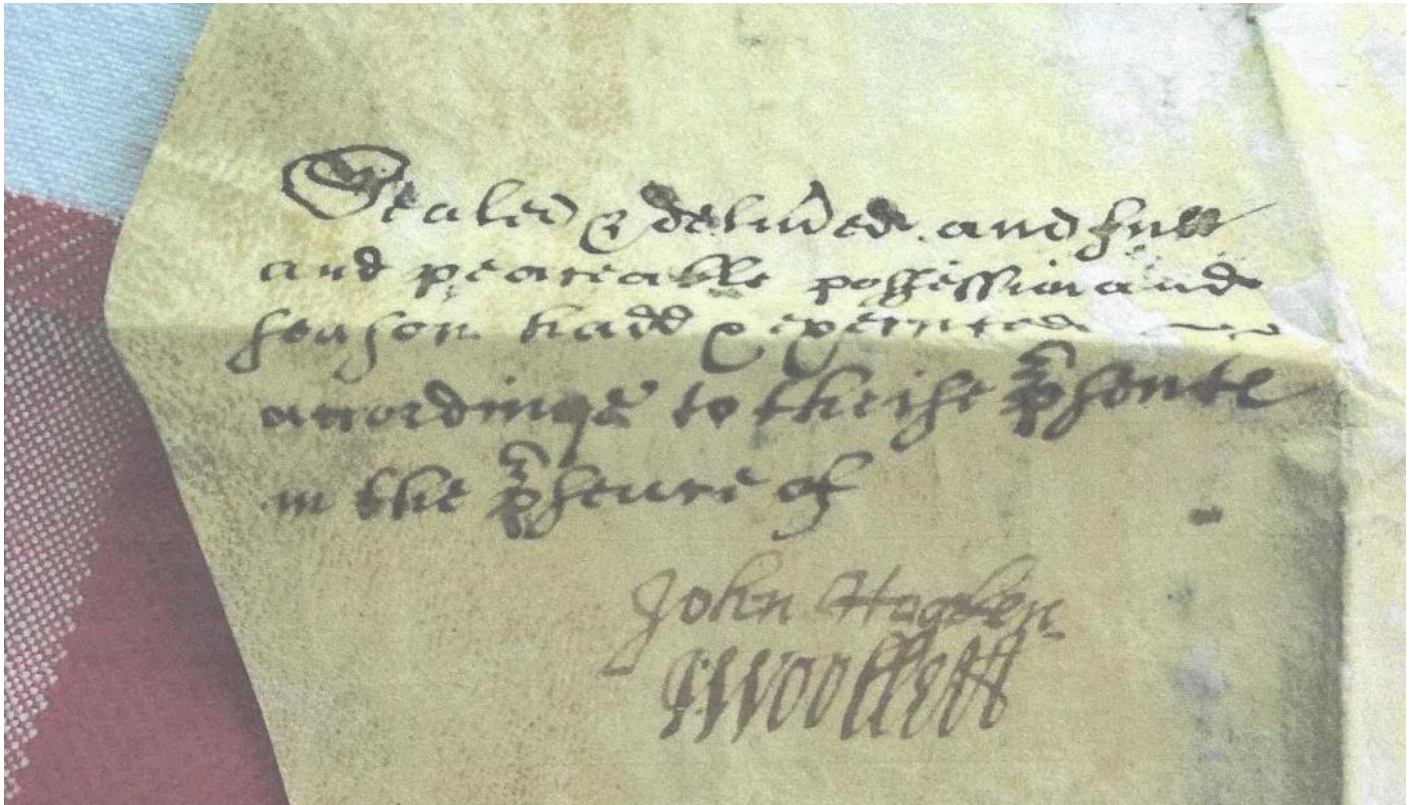 Sealed & deliv̄ed and full
and peaceable possession and
season hadd & executed
accordinge to theise p̄sente
in the p̄sence of
John Hagben
Woollett